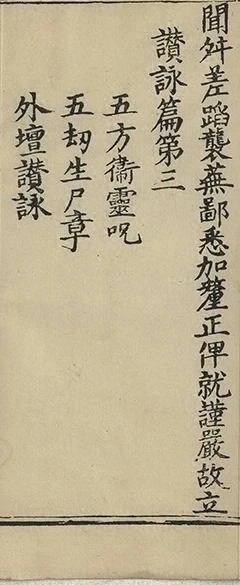 聞舛差蹈襲蕪鄙悉加釐正俾就謹嚴故立
讚詠篇第三
五方衞靈呪
五劫生尸章
外壇讚詠